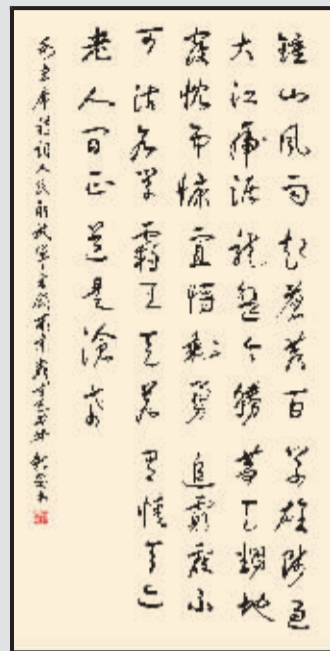 鍾山風雨起蒼黃百萬雄師過
大江虎踞龍盤今勝昔天翻地
覆慨而慷宜將剩勇追窮寇不
可沽名學霸王天若有情天亦
老人間正道是滄桑
毛主席詩詞人民解放軍占領南京